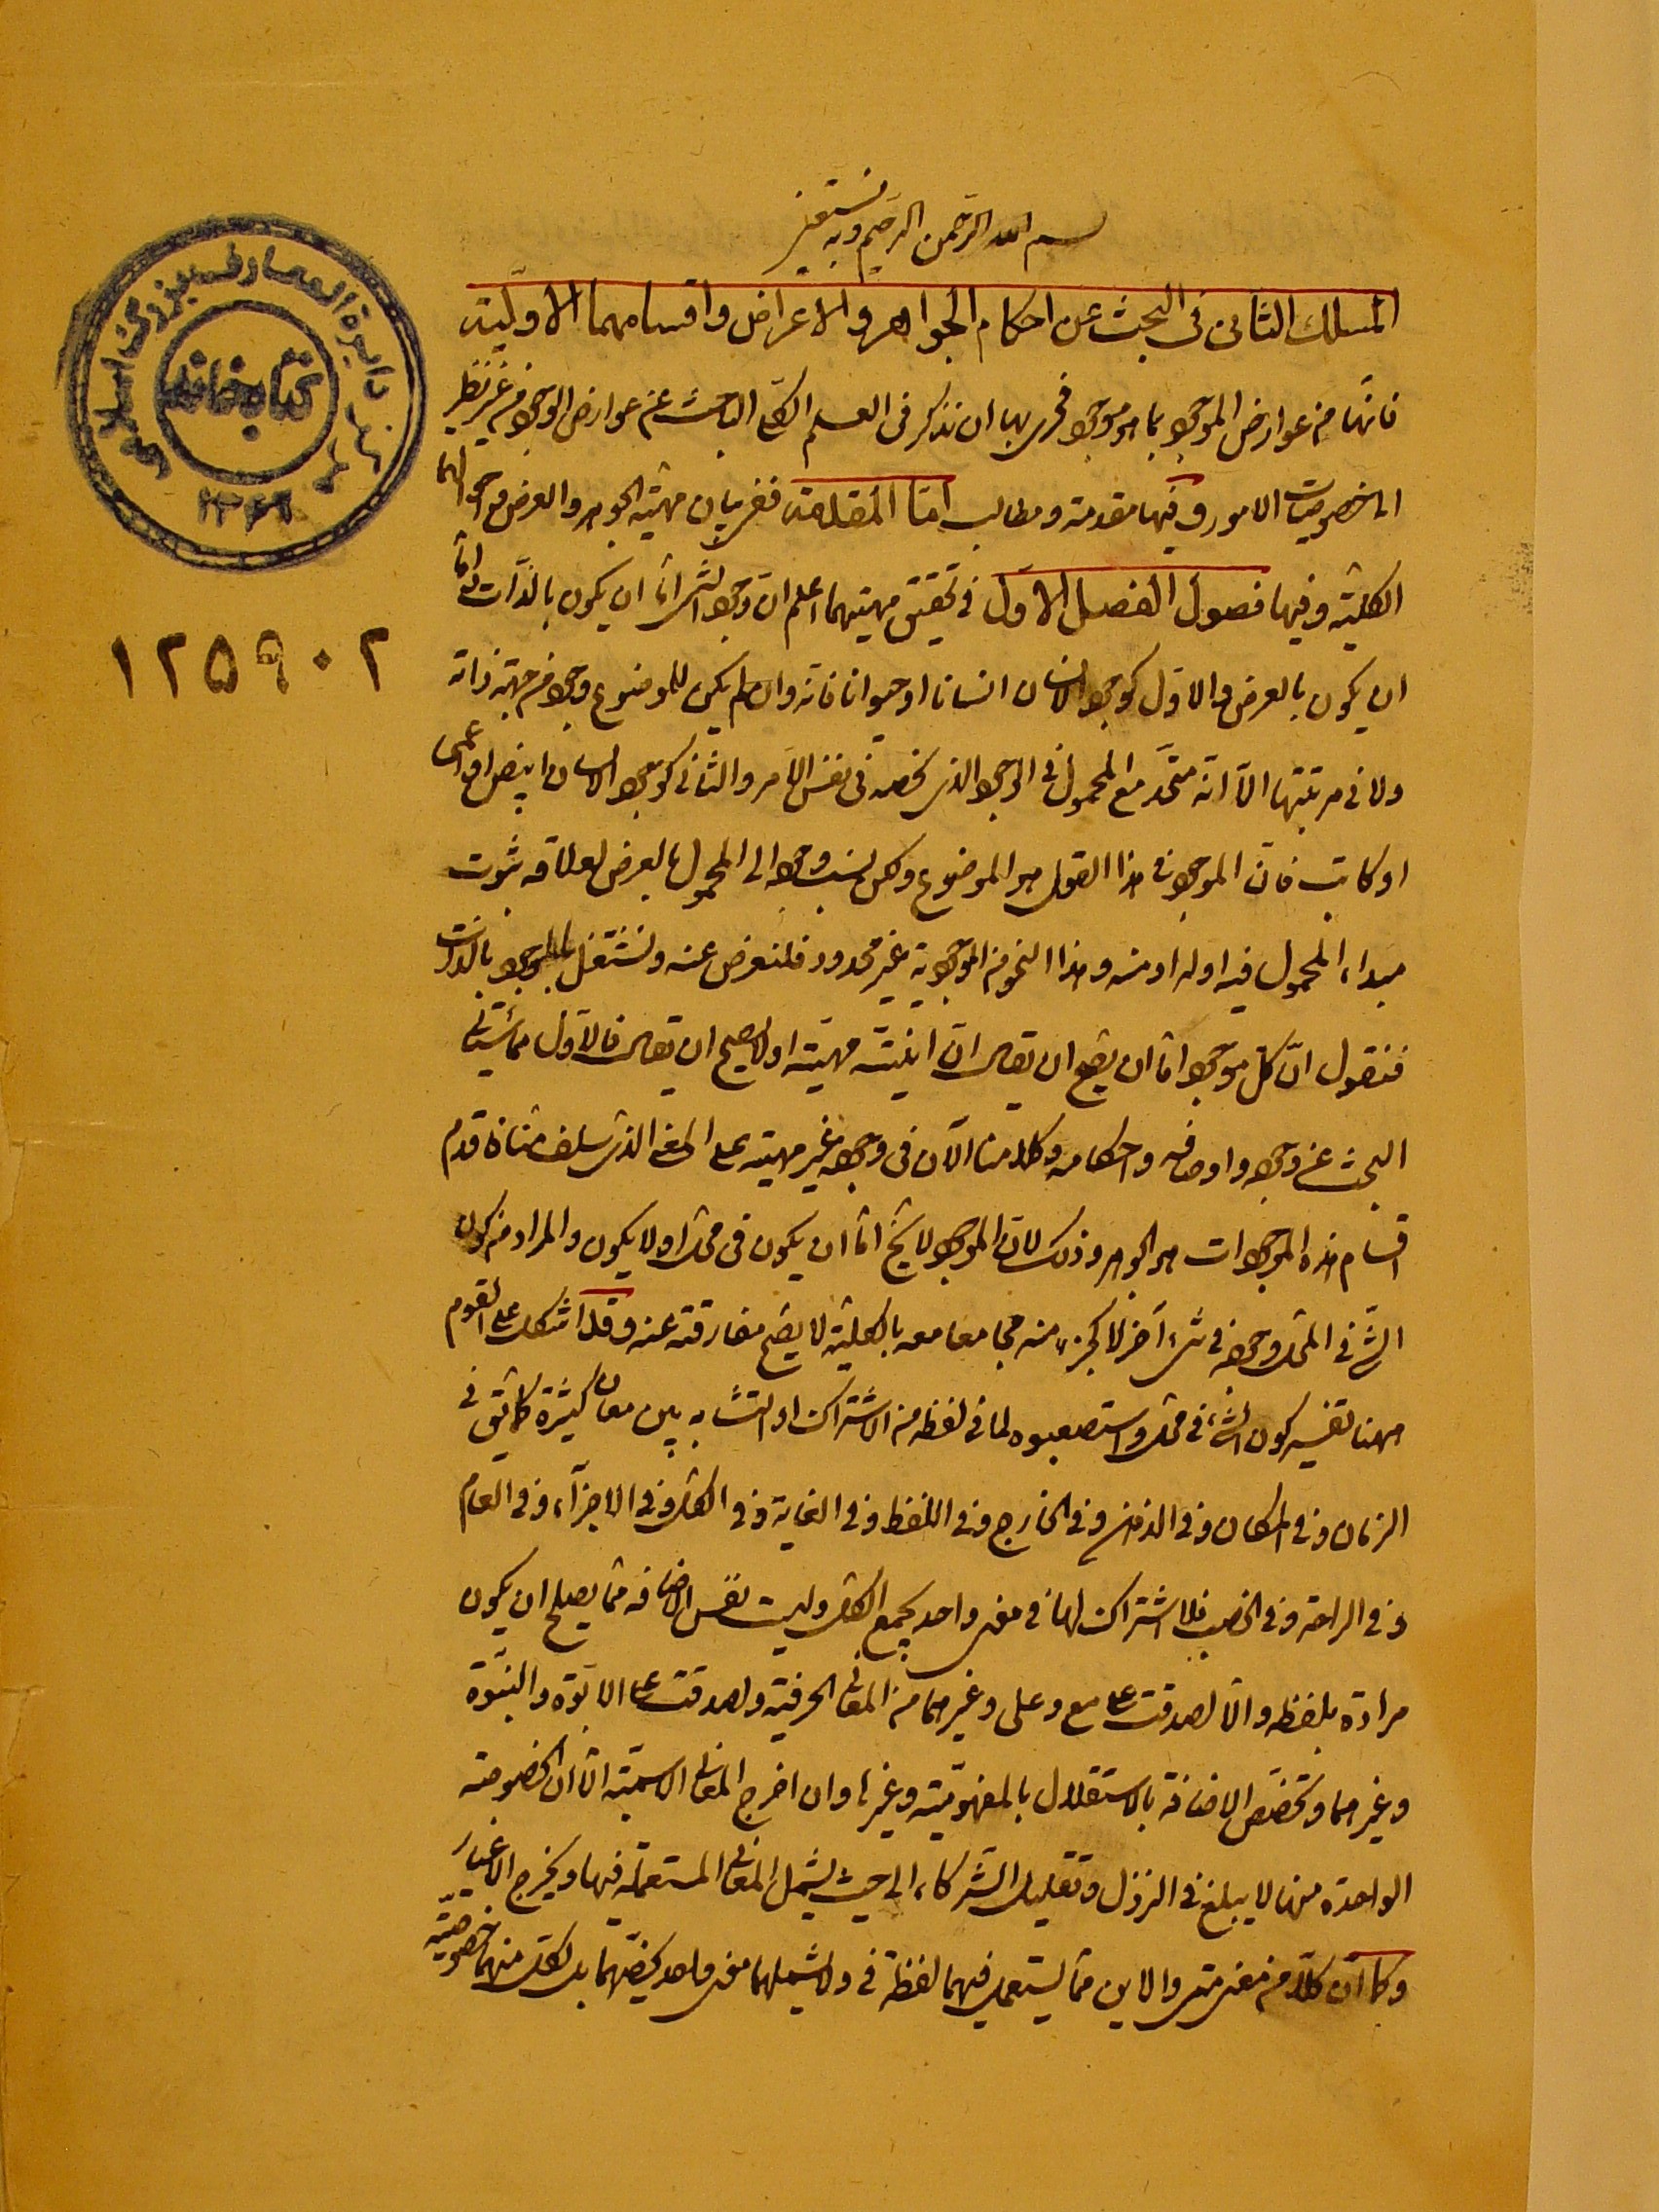 بسم الله الرحمن الرحيم وبه نستعين
المسلك الثانى فى البحث عن احكام الجواهر والاعراض واقسامهما الاولية
فانها من عوارض الموجود بما هو موجود فحرى بها ان نذكر فى العلم الكلى الباحث عن عوارض الوجود من غير نظر
الى خصوصيات الامور وفيها مقدمة ومطالب اما المقدمة ففى بيان مهية الجوهر والعرض واحوالهما
الكلية وفيها فصول الفصل الاول فى تحقيق مهيتهما اعلم ان وجود الشئ اما ان يكون بالذات واما
ان يكون بالعرض والاول كوجود الانسان انسانا او حيوانا فانه وان لم يكن للموضوع وجود من جهة ذاته
ولا فى مرتبتها الا انه متحد مع المحمول فى الوجود الذى يخصه فى نفس الامر والثانى كوجود الانسان ابيض او اعمى
او كاتب فان الموجود فى هذا القول هو الموضوع ولكن ينسب وجوده الى المحمول بالعرض لعلاقة ثبوت
مبداء المحمول فيه اوله او منه وهذا النحو من الموجودية غير محدود فلنعرض عنه ونشتغل بالموجود بالذات
فنقول ان كل موجود اما ان يصح ان يقال ان انيته مهيته او لا يصح ان يقال فالاول مما سيأتى
البحث عن وجوده واوصافه واحكامه وكلامنا الآن فى وجود غير مهيته على المعنى الذى سلف منا فاقدم
اقسام هذه الموجودات هو الجوهر وذلك لان الموجود لا يخ اما ان يكون فى محل او لا يكون والمراد من كون
الشئ فى المحل وجوده فى شئ آخر لا كجزء منه مجامعا معه بالكلية لا يصح مفارقته عنه وقد اشكل على القوم
ههنا تفسير كون الشئ فى محل واستصعبوه لما فى لفظه من الاشتراك او التشابه بين معان كثيرة كما يق فى
الزمان وفى المكان وفى الذهن وفى الخارج وفى اللفظ وفى الغاية وفى الكل وفى الاجزاء وفى العام
وفى الراحة وفى الخصب فلا اشتراك لها فى معنى واحد يجمع الكل وليست نفس الاضافة مما يصلح ان يكون
مرادة بلفظه والا لصدقت على مع وعلى وغيرهما من المعانى الحرفية ولصدقت على الابوة والبنوة
وغيرهما وتخصص الاضافة بالاستقلال بالمفهومية وغيرها وان اخرج المعانى الاسمية الا ان الخصوصية
الواحدة منها لا يبلغ فى التنزل وتقليل الشركاء الى حيث يشمل المعانى المستعملة فيها ويخرج الاغيار
وكما ان كلا من معنى متى والاين مما يستعمل فيهما لفظة فى ولا يشملهما معنى واحد يخصهما بل لكل منهما خصوصية
مركز دايرة المعارف بزرگ اسلامى
كتابخانه
١٣٦٦
١٢٥٩٠٢